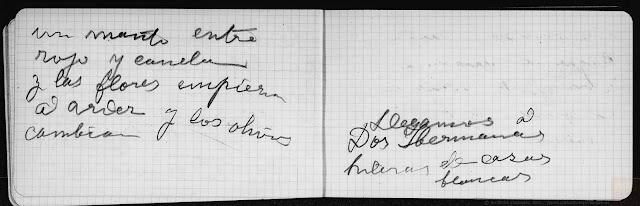 un manto entre
rojo y canela
y las flores empiezan
á arder y los olivos
cambian
Llegamos á
Dos Hermanas
hileras de casas
blancas